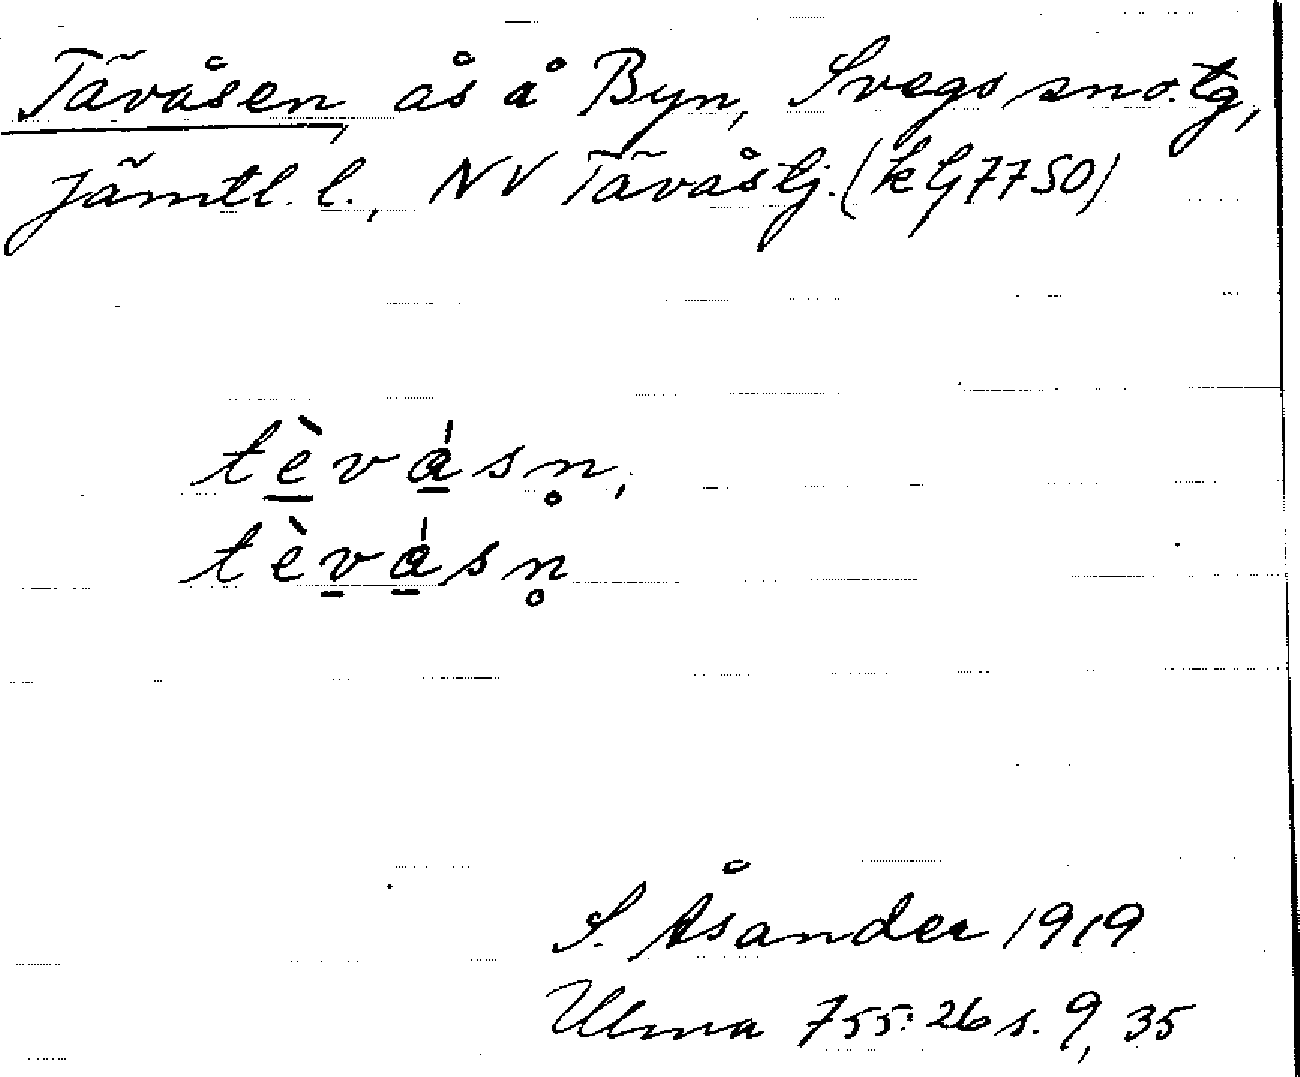 Tävåsen, ås å Byn, Svegs sn o. tg,
Jämtl. l., NV Tävåstj. (k bl 7750)
tèvásn̥,
tèvásn̥
S. Åsander 1919
Ulma 755:26 s. 9, 35